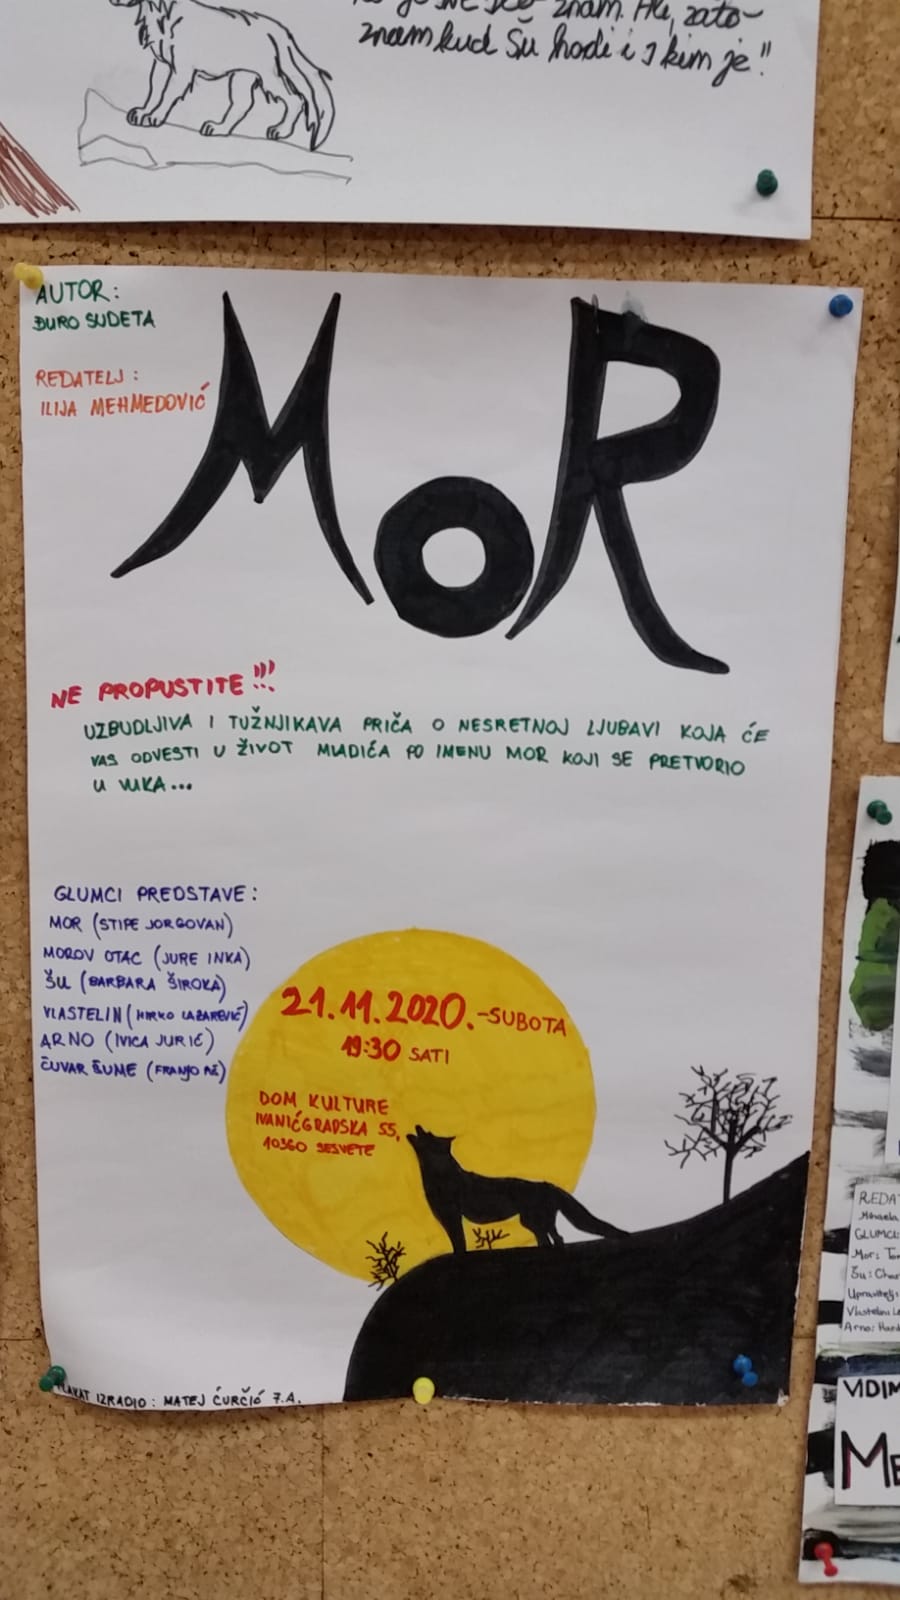 znam. Ali, zato-
znam kud Šu hodi i s kim je"
AUTOR:
ĐURO SUDETA
REDATELJ:
ILIJA MEHMEDOVIĆ
MoR
NE PROPUSTITE!!!
UZBUDLJIVA I TUŽNJIKAVA PRIČA O NESRETNOJ LJUBAVI KOJA ĆE
VAS ODVESTI U ŽIVOT MLADIĆA PO IMENU MOR KOJI SE PRETVORIO
U VUKA...
GLUMCI PREDSTAVE:
MOR (STIPE JORGOVAN)
MOROV OTAC (JURE INKA)
ŠU (BARBARA ŠIROKA)
VLASTELIN (MIRKO LAZAREVIĆ)
ARNO (IVICA JURIĆ)
ČUVAR ŠUME (FRANJO
21.11.2020.-SUBOTA
19:30 SATI
DOM KULTURE
IVANIĆGRADSKA 55,
10360 SESVETE
PLAKAT IZRADIO: MATEJ ĆURČIĆ 7.A.
REDA
Mihaela
GLUMCI:
Mor:
Šu:
Upravitelj:
Arno:
VIDIM